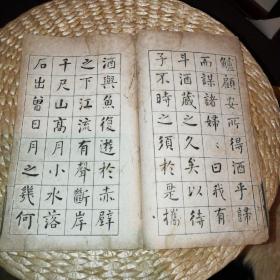 鱸顧安所得酒乎歸
而謀諸婦〻曰我有
斗酒藏之久矣以待
子不時之須於是攜
酒與魚復遊於赤壁
之下江流有聲斷岸
千尺山高月小水落
石出曾日月之幾何